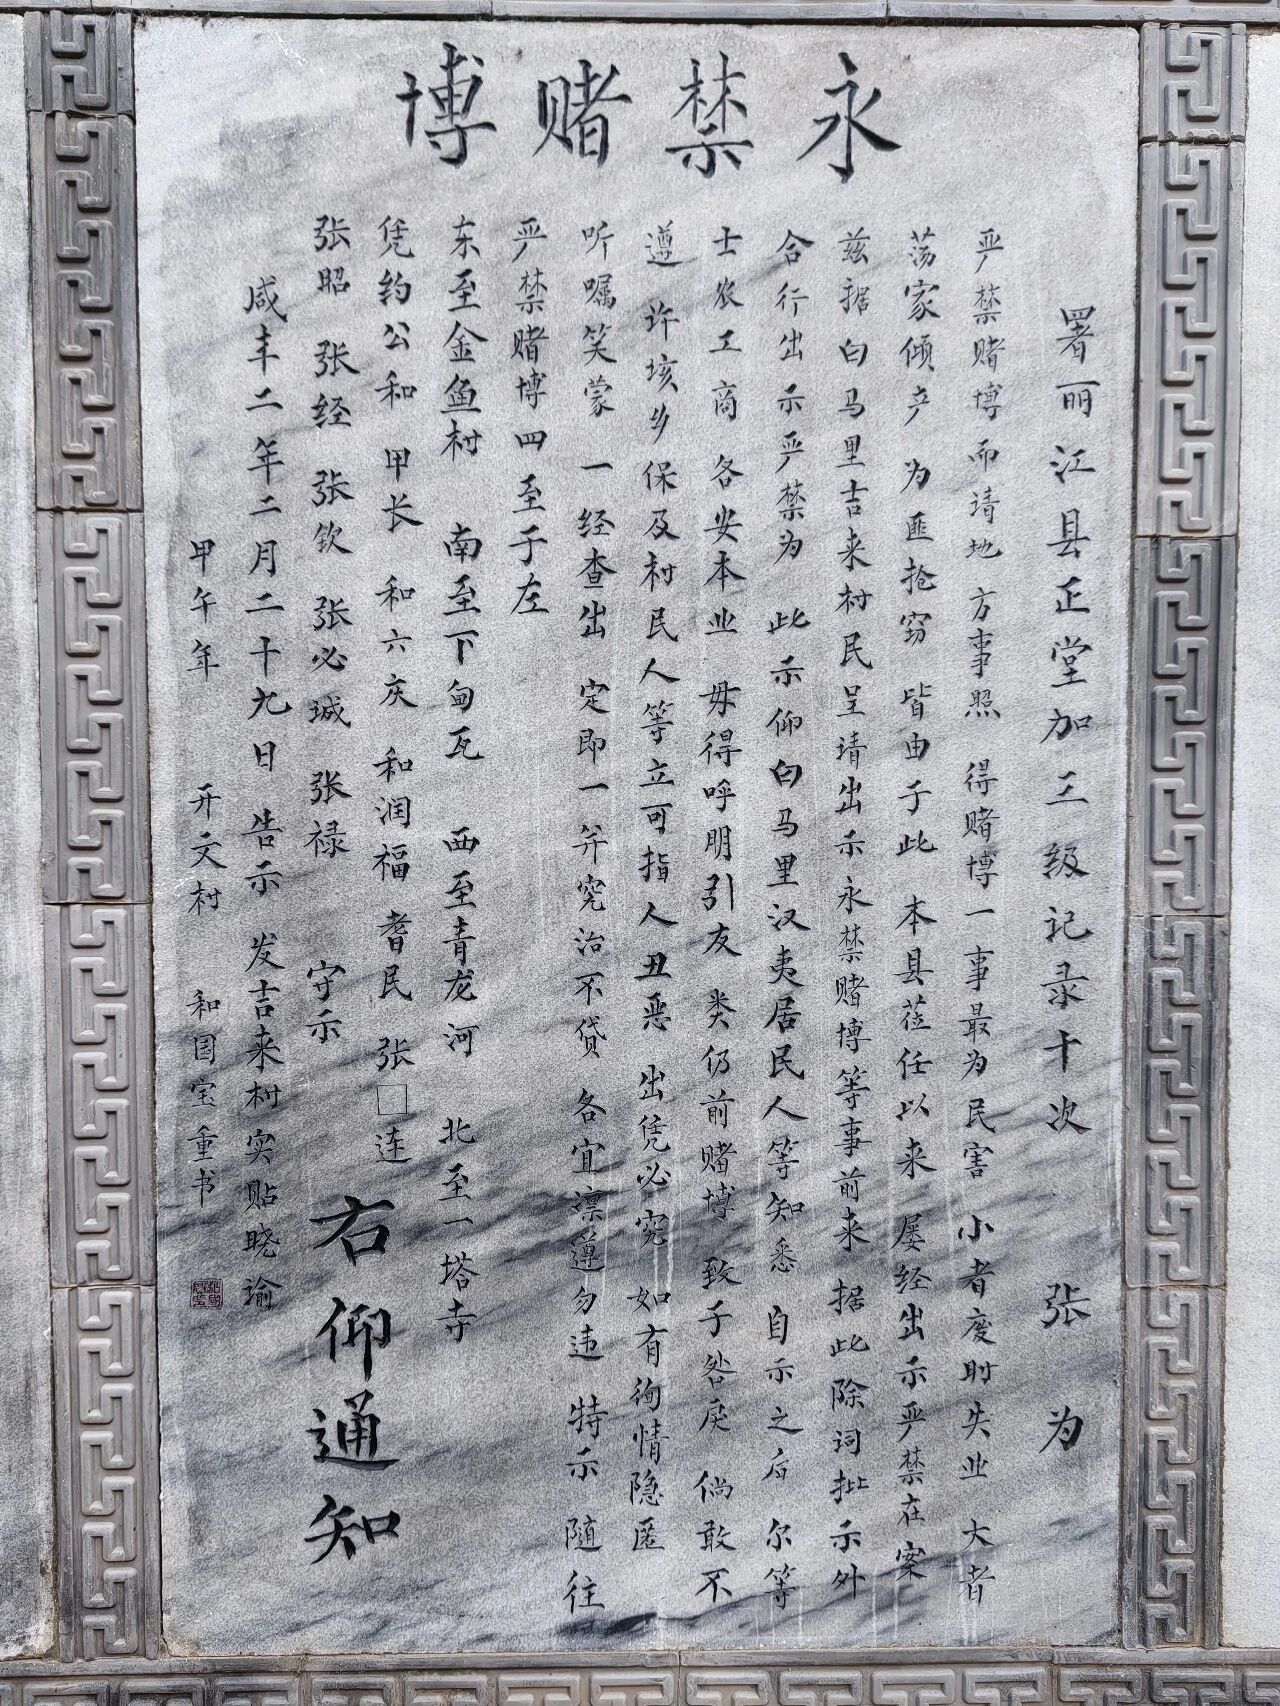 永禁赌博
署丽江县正堂加三级记录十次 张 为
严禁赌博而请地 方事照 得赌博一事最为民害 小者废时失业 大者
荡家倾产 为匪抢窃 皆由于此 本县莅任以来 屡经出示严禁在案
兹据白马里吉来村民呈请出示永禁赌博等事前来 据此除词批示外
合行出示严禁为 此示仰白马里汉夷居民人等知悉 自示之后 尔等
士农工商 各安本业 毋得呼朋引友 类仍前赌博 致于咎戾 倘敢不
遵 许垓乡保及村民人等立可指人丑恶 出凭必究 如有徇情隐匿
听嘱笑蒙 一经查出 定即一并究治不贷 各宜凛遵勿违 特示 随往
严禁赌博四至于左
东至金鱼村 南至下甸瓦 西至青龙河 北至一塔寺
凭约公和 甲长 和六庆 和润福 耆民 张□连
张昭 张经 张钦 张必城 张禄 守示
右仰通知
咸丰二年二月二十九日 告示 发吉来村实贴晓谕
甲午年 开文村 和国宝重书